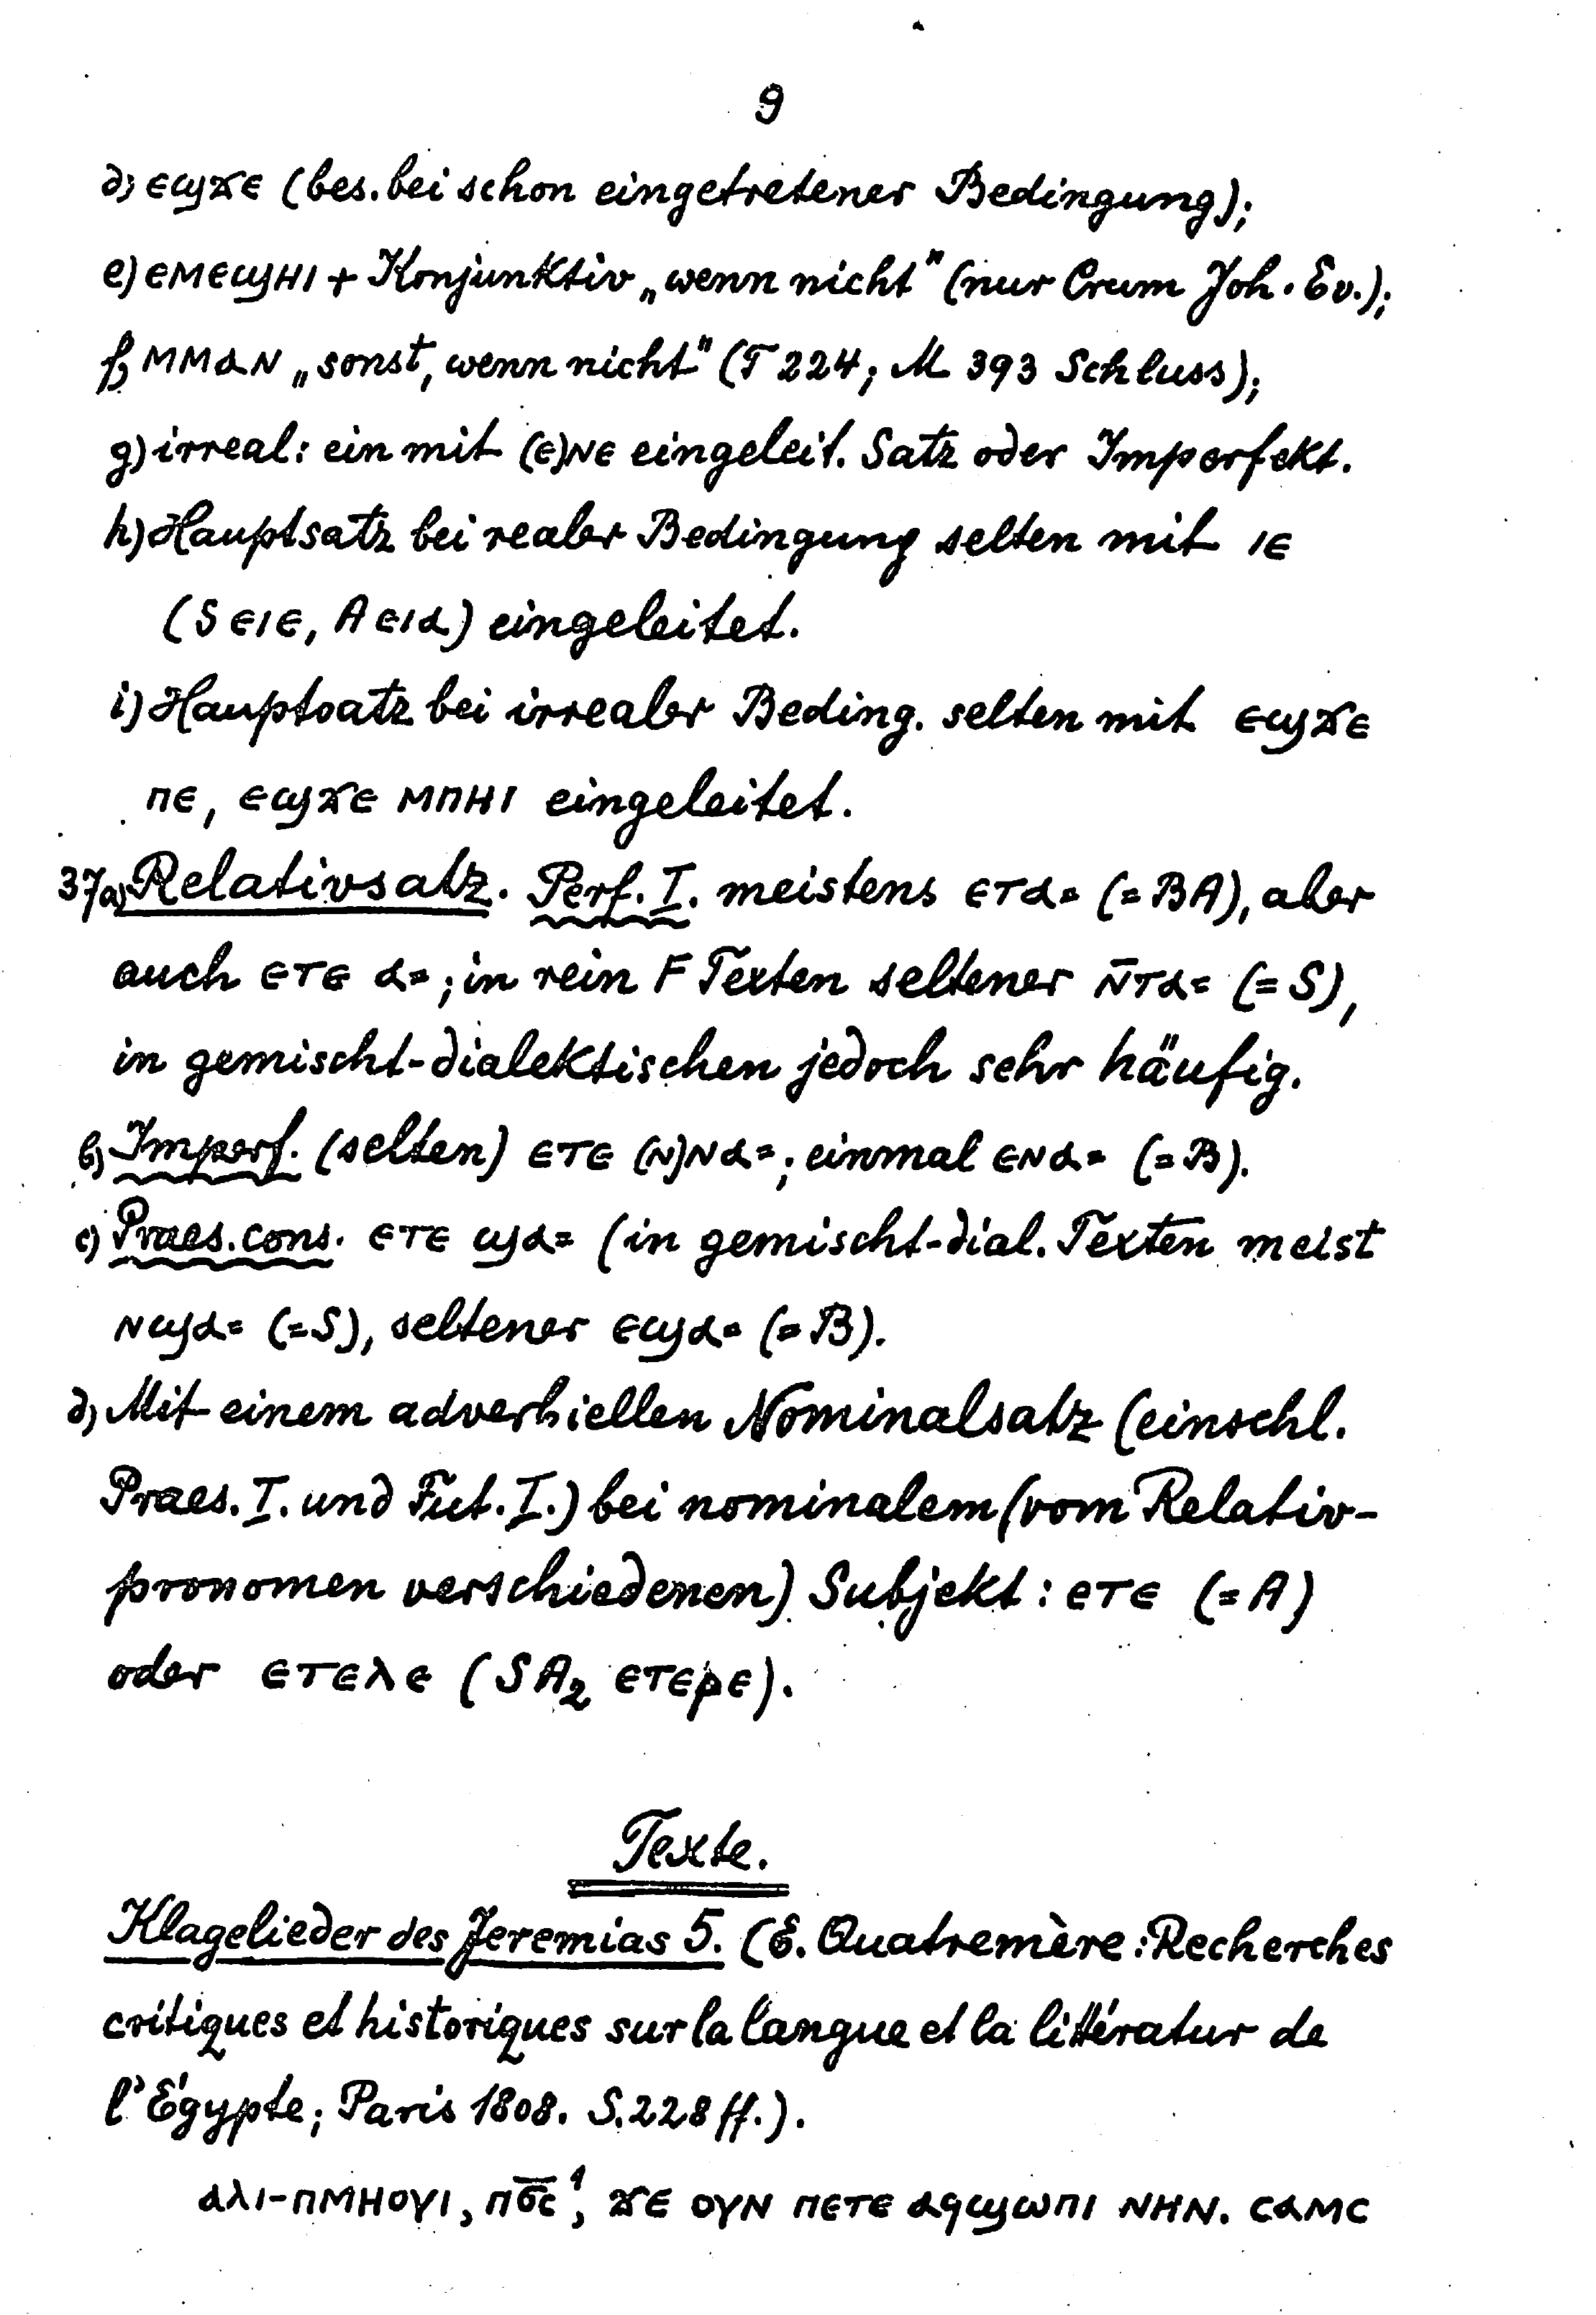 9
d) ⲉϣϫⲉ (bes. bei schon eingetretener Bedingung);
e) ⲉⲙⲉϣⲏⲓ + Konjunktiv „wenn nicht" (nur Crum Joh. Ev.);
f) ⲙⲙⲁⲛ „sonst, wenn nicht" (T 224; M 393 Schluss);
g) irreal: ein mit (ⲉ)ⲛⲉ eingeleit. Satz oder Imperfekt.
h) Hauptsatz bei realer Bedingung selten mit ⲓⲉ
(S ⲉⲓⲉ, A ⲉⲓⲁ) eingeleitet.
i) Hauptsatz bei irrealer Beding. selten mit ⲉϣϫⲉ
ⲡⲉ, ⲉϣϫⲉ ⲙⲡⲏⲓ eingeleitet.
37a) Relativsatz. Perf. I. meistens ⲉⲧⲁ= (=BA), aber
auch ⲉⲧⲉ ⲁ=; in rein F Texten seltener ⲛ̄ⲧⲁ= (=S),
in gemischt-dialektischen jedoch sehr häufig.
b) Imperf. (selten) ⲉⲧⲉ (ⲛ)ⲛⲁ=; einmal ⲉⲛⲁ= (=B).
c) Praes. cons. ⲉⲧⲉ ϣⲁ= (in gemischt-dial. Texten meist
ⲛϣⲁ= (=S), seltener ⲉϣⲁ= (=B).
d) Mit einem adverbiellen Nominalsatz (einschl.
Praes. I. und Fut. I.) bei nominalem (vom Relativ-
pronomen verschiedenen) Subjekt: ⲉⲧⲉ (=A)
oder ⲉⲧⲉⲗⲉ (SA₂ ⲉⲧⲉⲣⲉ).
Texte.
Klagelieder des Jeremias 5. (E. Quatremère: Recherches
critiques et historiques sur la langue et la littératur de
l'Égypte; Paris 1808. S. 228 ff.).
ⲁⲗⲓ-ⲡⲙⲏⲟⲩⲓ, ⲡϭ̅ⲥ̅¹, ϫⲉ ⲟⲩⲛ ⲡⲉⲧⲉ ⲁϥϣⲱⲡⲓ ⲛⲏⲛ. ⲥⲁⲙⲥ